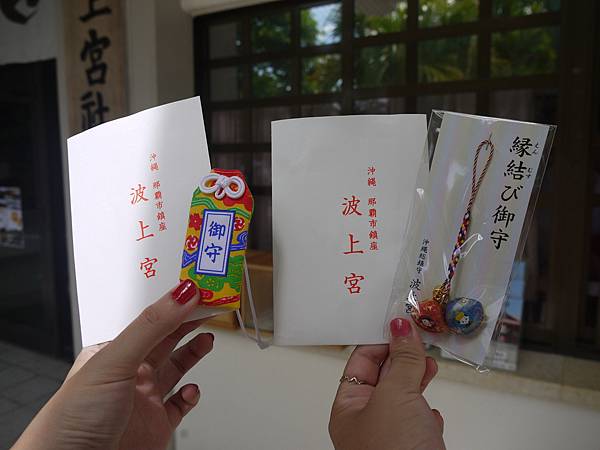 上宮社
沖縄 那覇市鎮座
波上宮
御守
沖縄 那覇市鎮座
波上宮
縁結び御守
えん
むす
沖縄総鎮守 波上宮